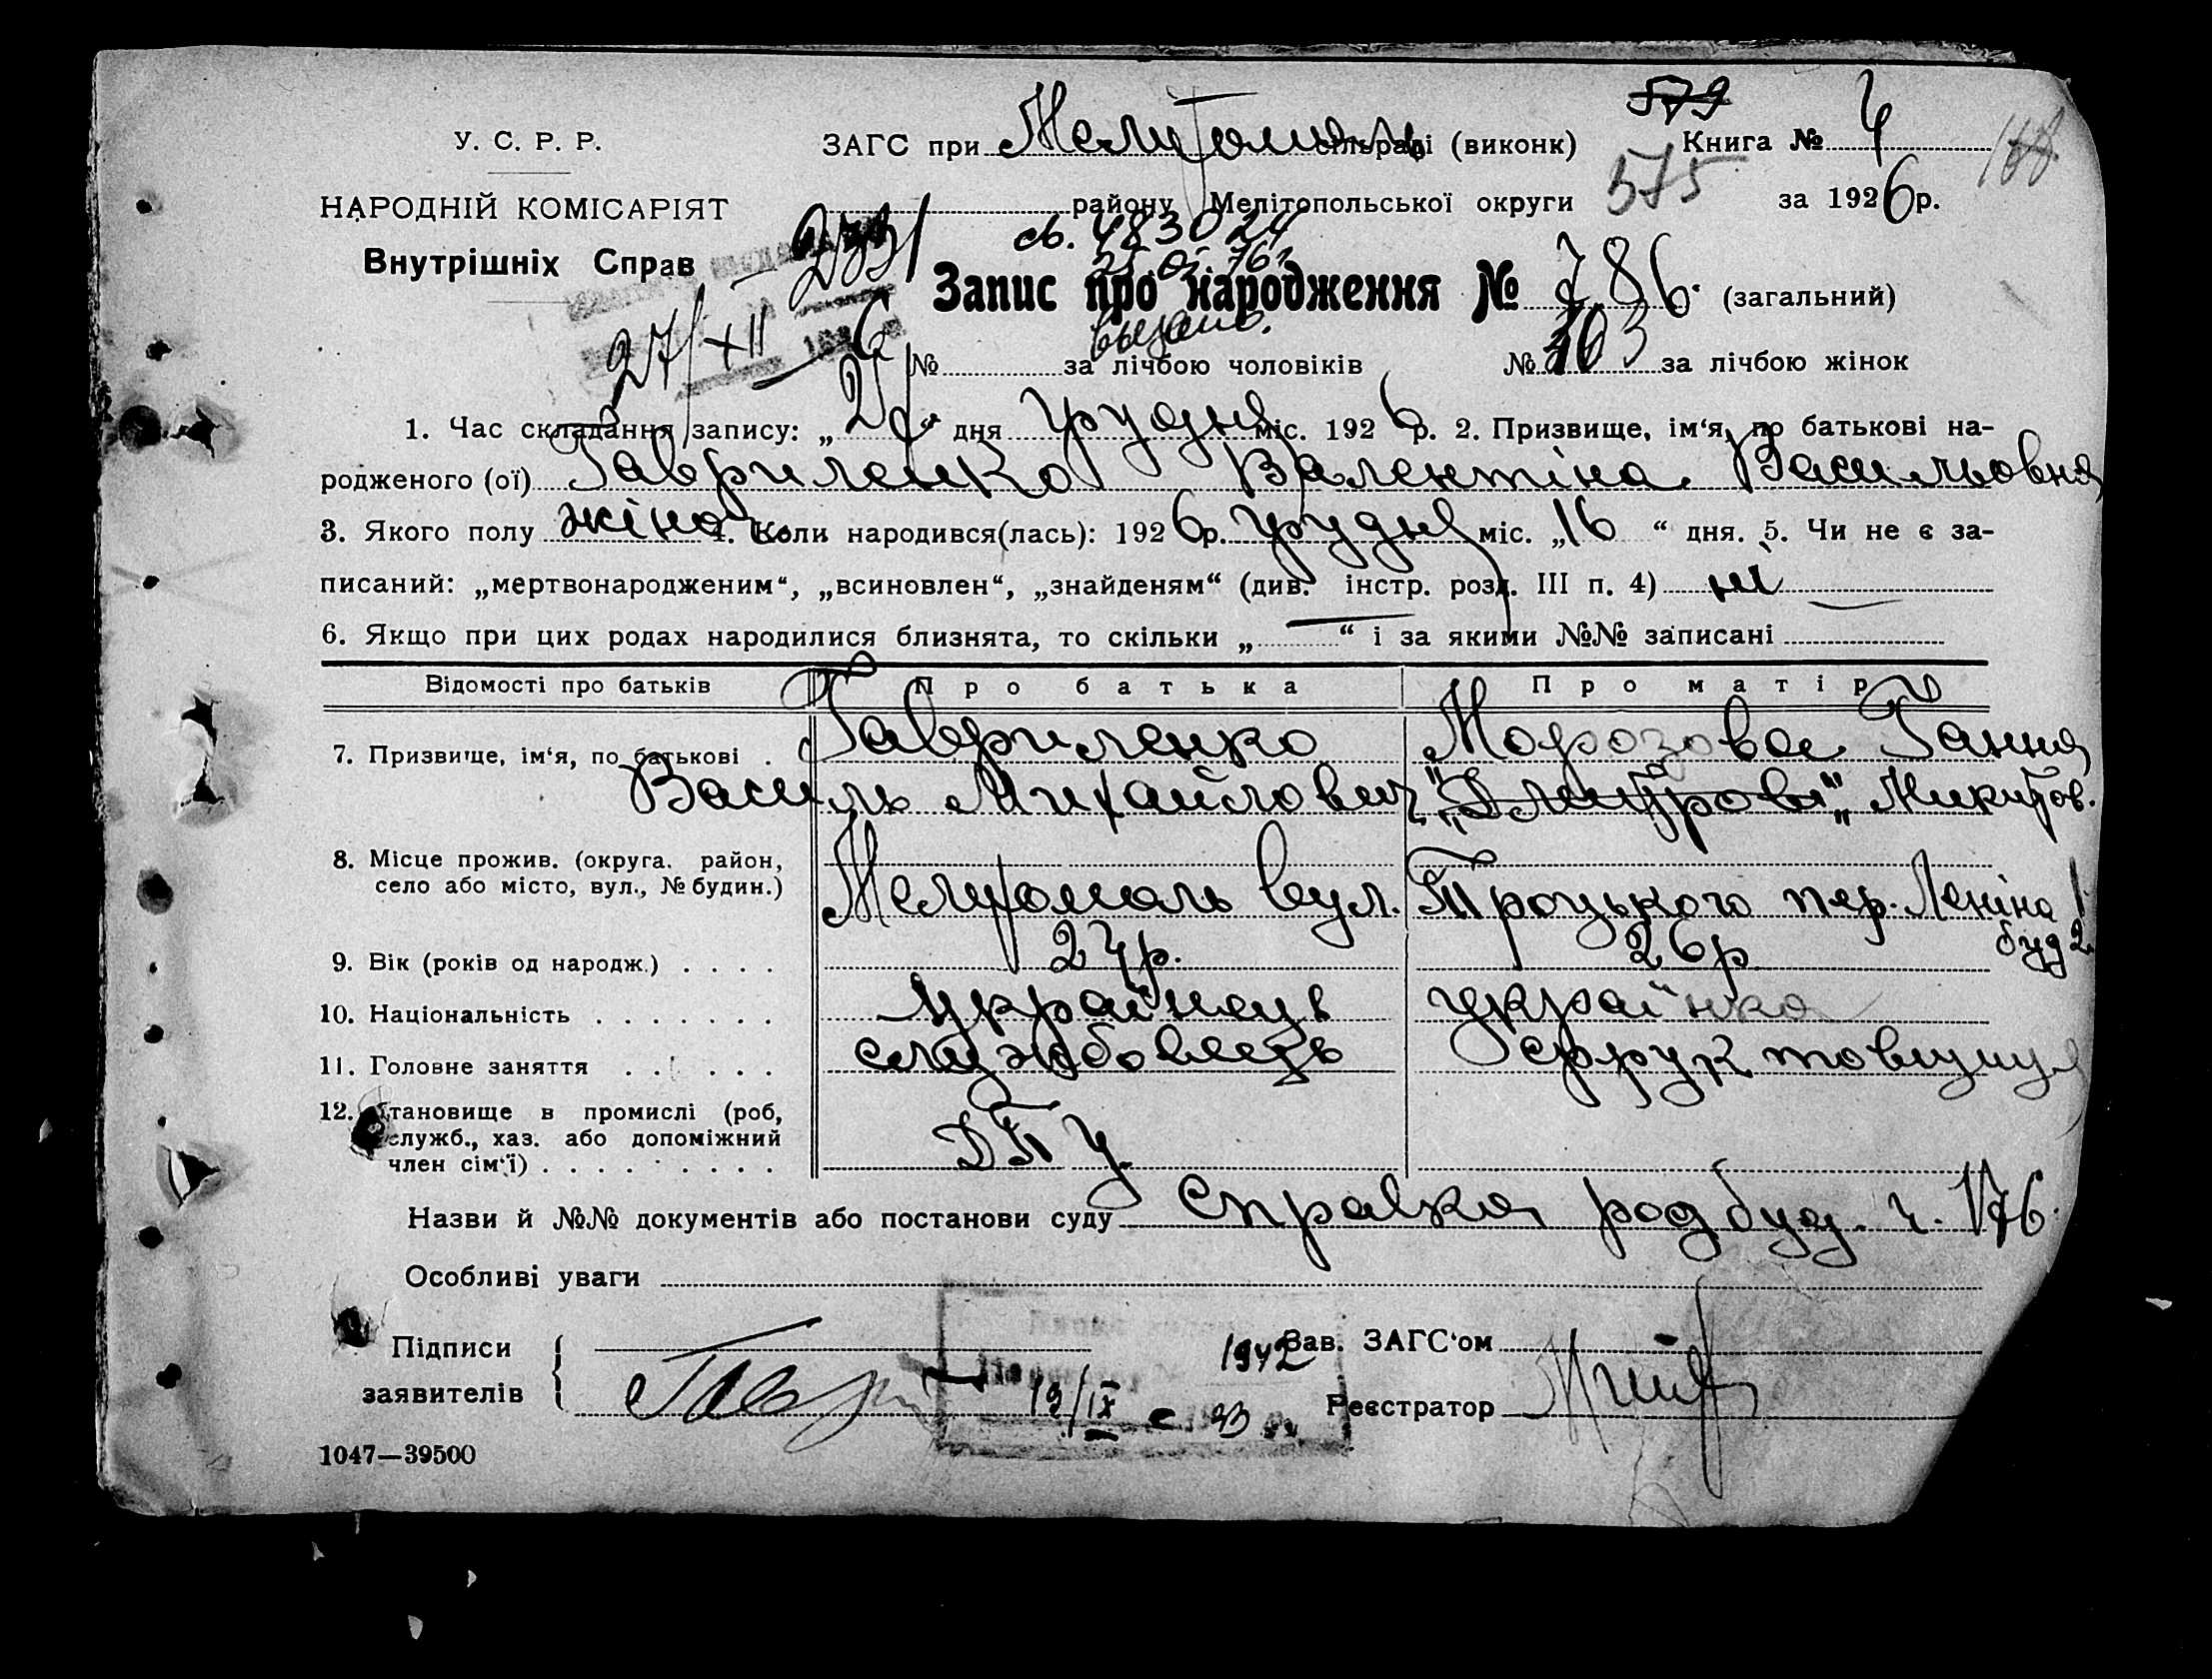 579
У. С. Р. Р. ЗАГС при Мелитопольс сільраді (виконк) Книга № 4
188
НАРОДНІЙ КОМІСАРІЯТ району Мелітопольської округи 575 за 1926 р.
св. 483024
Внутрішніх Справ
Запис про народження № 786. (загальний)
выдано.
27/XII 6
№ за лічбою чоловіків № 363 за лічбою жінок
1. Час складання запису: „27“ дня грудня міс. 1926 р. 2. Призвище, ім‘я, по батькові на-
родженого (ої) Гавриленко Валентіна Васильовна
3. Якого полу жіноч. 4. Коли народився(лась): 1926 р. грудня міс. „16“ дня. 5. Чи не є за-
писаний: „мертвонародженим“, „всиновлен“, „знайденям“ (див. інстр. розд. III п. 4) ні
6. Якщо при цих родах народилися близнята, то скільки „—“ і за якими №№ записані
Відомості про батьків Про батька Про матір
7. Призвище, ім‘я, по батькові . Гавриленко Морозова Ганна
Василь Михайлович „Дмитрові„ Микитов.
8. Місце прожив. (округа. район,
село або місто, вул., № будин.) Мелитополь вул. Троцького пер. Леніна
буд 2.
9. Вік (років од народж.) . . . . 24 р. 26 р.
10. Національність . . . . . . . українець українка
11. Головне заняття . . . . . . службовець фруктовщиця
12. Становище в промислі (роб,
служб., хаз. або допоміжний ДПУ
член сім‘ї) . . . . . . . . .
Назви й №№ документів або постанови суду Справка род буд. ч. 176.
Особливі уваги
Підписи 1942 Зав. ЗАГС‘ом
заявителів 19/IX Реєстратор
1047—39500